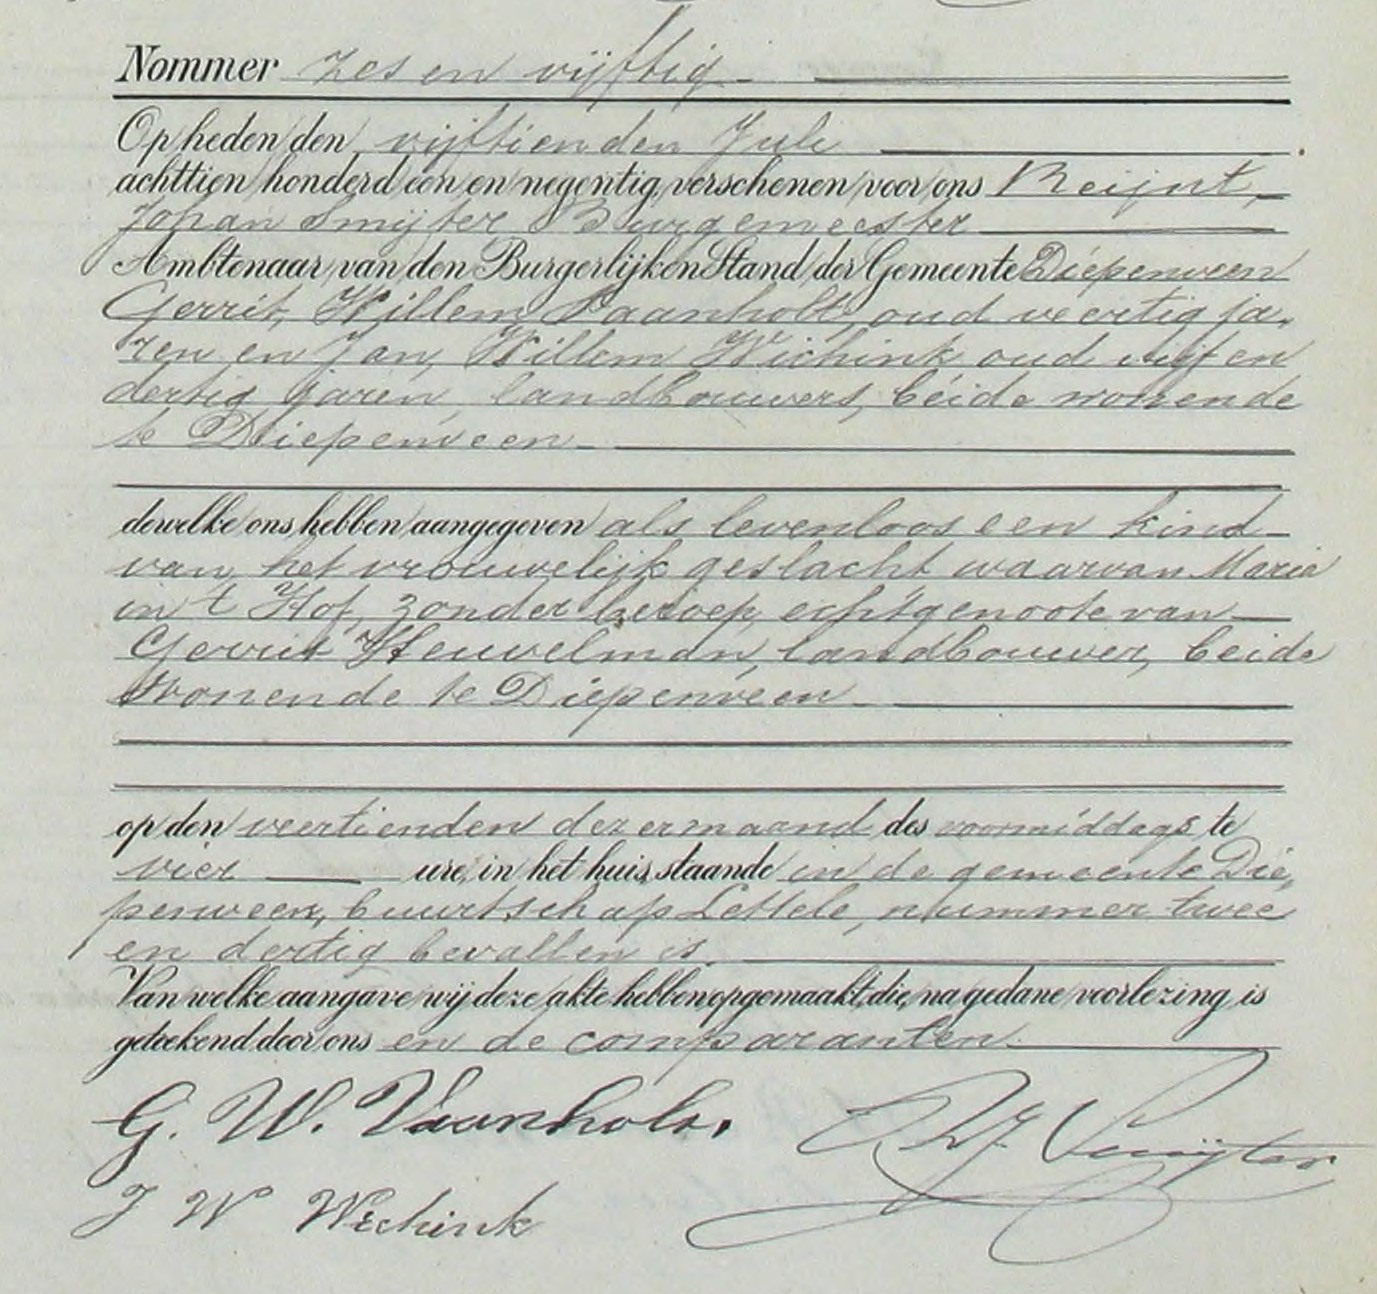 Nommer zes en vijftig
Op heden den vijftienden Juli
achttien honderd een en negentig, verschenen voor ons Reijnt
Johan Smijter Burgemeester
Ambtenaar van den Burgerlijken Stand der Gemeente Diepenveen
Gerrit Willem Vaanholt, oud veertig ja-
ren en Jan Willem Wichink oud vijf en
dertig jaren, landbouwers, beide wonende
te Diepenveen
dewelke ons hebben aangegeven als levenloos een kind
van het vrouwelijk geslacht waarvan Maria
in 't Hof, zonder beroep, echtgenoote van
Gerrit Heuvelman, landbouwer, beide
wonende te Diepenveen
op den veertienden dezer maand des voormiddags te
vier ure, in het huis, staande in de gemeente Die-
penveen, buurtschap Lettele, nummer twee
en dertig bevallen is.
Van welke aangave wij deze akte hebben opgemaakt, die, na gedane voorlezing is
geteekend door ons en de comparanten.
G. W. Vaanholt.
RJ Smijter
J W Wichink